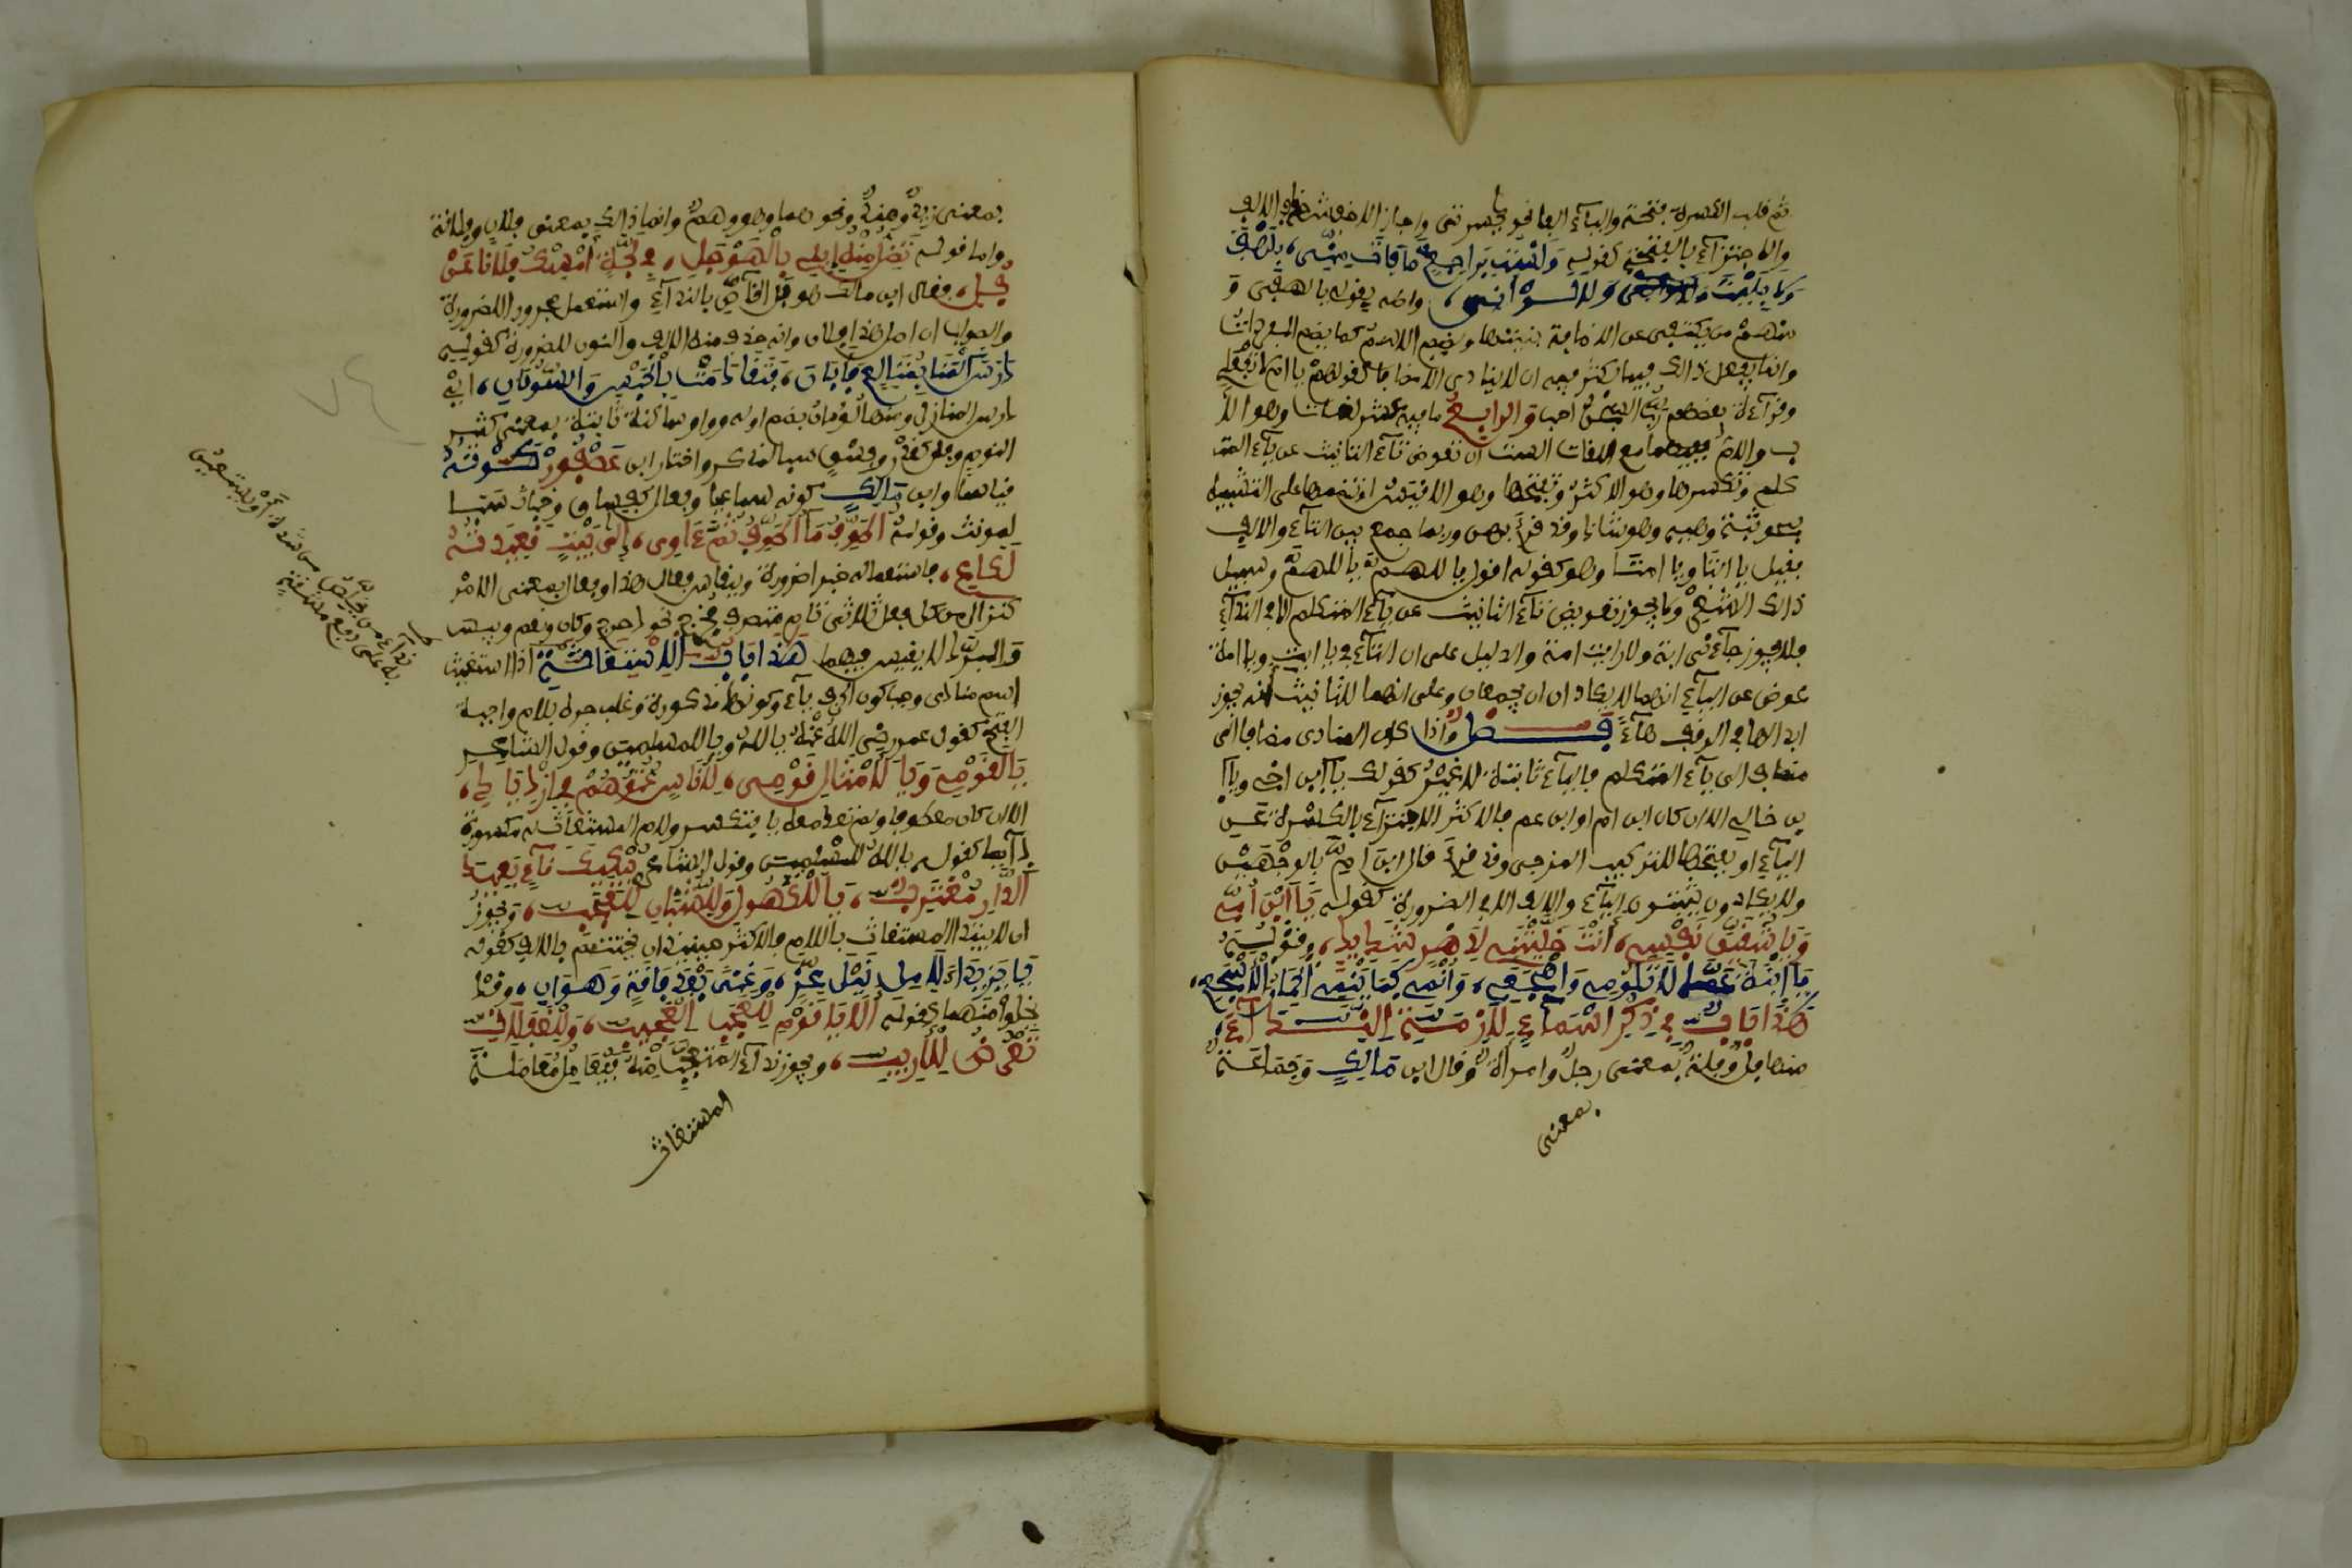 ثم قلب الكسرة فتحة والياء الفا نحو يا حسرتى واجاز الاخفش حذف الالف
والاجتزاء بالفتحة كقوله وَلَسْتُ بِرَاجِعٍ مَا فَاتَ مِنِّي، بِلَهْفَ
وَلَا بِلَيْتَ وَلَا لَوَ انِّي، اصله بقوله يا لهفى و
منهم من يكتفى عن الاضافة بنيتها ويضم الاسم كما يضم المفردات
وانما يفعل ذالك فيما يكثر فيه ان لا ينادى الا مضافا كقولهم يا ام لا تفعلي
وقراءة بعضهم ربُّ السجنُ احب والرابع ما فيه عشر لغات وهو الأ
ب والام ففيهما مع اللغات الست ان تعوض تاء التانيث عن ياء المتـ
ـكلم وتكسرها وهو الاكثر وتفتحها وهو الاقيس او تضمها على التشبيه
بنحو ثبة وهبه وهو شاذ وقد قرئ بهن وربما جمع بين التاء والالف
فقيل يا ابتا ويا امتا وهو كقوله اقول يا اللهم يا اللهم وسبيل
ذالك الشعر ولا يجوز تعويض تاء التانيث عن ياء المتكلم الا في النداء
فلا يجوز جاءنى ابة ولا رايت امة والدليل على ان التاء في يا ابت ويا امة
عوض عن الياء انهما لا يكادان ان يجمعان وعلى انهما للتانيث انه يجوز
ابدالها في الوقف هاء فصل واذا كان المنادى مضافا الى
مضاف الى ياء المتكلم فالياء ثابتة لا غير كقولك يا ابن اخي ويا ا
بن خالي الا ان كان ابن ام او ابن عم فالاكثر الاجتزاء بالكسرة عن
الياء او بفتحها للتركيب المزجى وقد قرئ قال ابن ام بالوجهين
ولا يكادون يثبتون الياء والالف الا في الضرورة كقوله يَا ابْنَ أُمِّي
وَيَا شُقَيِّقَ نَفْسِي، أَنْتَ خَلَّيْتَنِي لِدَهْرٍ شَدِيدٍ، وقوله
يَا ابْنَةَ عَمَّا لَا تَلُومِي وَاهْجَعِي، وَانْمِي كَمَا يَنْمِي
هَذَا بَابٌ فِي ذِكْرِ أَسْمَاءٍ لَازَمَتِ النِّدَاءَ،
منها فل وفلة بمعنى رجل وامراة وقال ابن مالك وجماعة
بمعنى
بمعنى زيد وهند ونحوهما وهو وهم وانما ذالك بمعنى فلان وفلانة
واما قوله تَضِلُّ مِنْهُ إِبِلِي بِالْهَوْجَلِ، فِي لَجَّةٍ أَمْسِكْ فُلَانًا عَنْ
فُلِ، فقال ابن مالك هو فل الخاص بالنداء واستعمل مجرورا للضرورة
والصواب ان اصل هذا فلان وانه حذف منه الالف والنون للضرورة كقوله
دَرَسَ الْمَنَا بِمُتَالِعٍ فَأَبَانَ، فَتَقَادَمَتْ بِالْحَبْسِ وَالسُّوبَانِ، اي
درس المنازل ومنها لؤمان بضم اوله وواو ساكنة ثانية بمعنى كثير
اللوم وفل كغدر وفسق سبا للمذكر واختار ابن عصفور كونه
قياسا وابن مالك كونه سماعيا وفعال كفساق وخباث سبا
لمونث وقوله أُطَوِّفُ مَا أُطَوِّفُ ثُمَّ ءَاوِي، إِلَى بَيْتٍ قَعِيدَتُهُ
لَكَاعِ، فاستعماله خبرا ضرورة وينقاس فعال هذا وفعال بمعنى الامر
كنزال من كل فعل ثلاثى تام متصرف فخرج نحو دحرج وكان ونعم وبيس
والمبرد لا يقيس فيهما هَذَا بَابُ الاسْتِغَاثَةِ اذا استغيث
اسم منادى وجب كون الحرف ياء وكونها مذكورة وغلب جره بلام واجبة
الفتح كقول عمر رضي الله عنه يا لله ويا للمسلمين وقول الشاعر
يَا لَقَوْمِي وَيَا لَأَمْثَالِ قَوْمِي، لِأُنَاسٍ عُتُوُّهُمْ فِي ازْدِيَادِ،
الا ان كان معطوفا ولم تعد معه يا فتكسر ولام المستغاث له مكسورة
دايما كقوله يا لله للمسلمين وقول الشاعر يَبْكِيكَ نَاءٍ بَعِيدُ
الدَّارِ مُغْتَرِبٌ، يَا لَلْكُهُولِ وَلِلشُّبَّانِ لِلْعَجَبِ، ويجوز
ان لا يبتدا المستغاث باللام فالاكثر حينئذ ان يختتم بالالف كقوله
يَا يَزِيدَا لِآمِلٍ نَيْلَ عِزٍّ، وَغِنًى بَعْدَ فَاقَةٍ وَهَوَانِ، وقد
يخلوا منهما كقوله أَلَا يَا قَوْمِ لِلْعَجَبِ الْعَجِيبِ، وَلِلْغَفَلَاتِ
تَعْرِضُ لِلْأَرِيبِ، ويجوز نداء المتعجب منه فيعامل معاملة
المستغاث
نداء من يخلص من شدة او يعين
على دفع مشقة